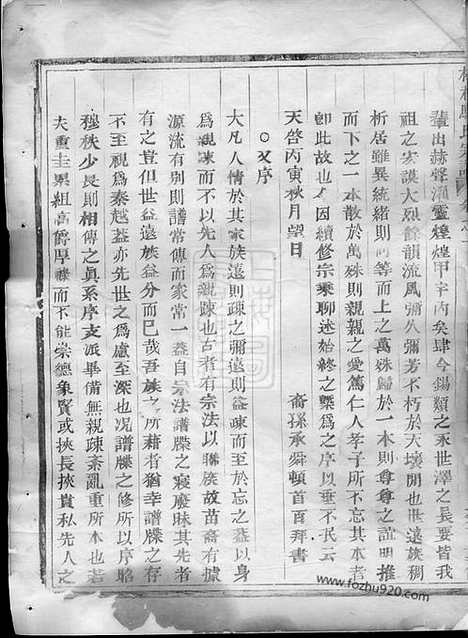 輩出赫聲濯靈煌煌甲宇內矣肆今錫類之永世澤之長要皆我
祖之宏謨大烈餘韻流風彌久彌芳不朽於天壤閒也世遠族稠
析居雖異統緒則同等而上之萬殊歸於一本則尊尊之誼明推
而下之一本散於萬殊則親親之愛篤仁人孝子所以事其先者
卽此故也因續修宗乘聊述始終之槩爲之序以垂不民云
天啓丙寅秋月望日
裔孫承舜頓首百拜書
又序
大凡人情於其家族遠則疎之彌遠則益疎而至於忘之蓋以身
爲親疎而不以先人爲親疎也古者有宗法以聯族故苗裔有據
源流有別則譜常傳而家常一益自宗法譜牒之寖廢昧其先者
有之豈但世益遠族益分而已哉吾族之所藉者猶幸譜牒之存
不至視爲秦越蓋亦先世之爲慮至深也況譜牒之修所以序昭
穆秩少長則相傳之眞系序支派畢備無親疎紊亂重所本也若
夫重圭累組高爵厚祿而不能崇德象賢或挾長挾貴私先人之
www.fozhu920.com